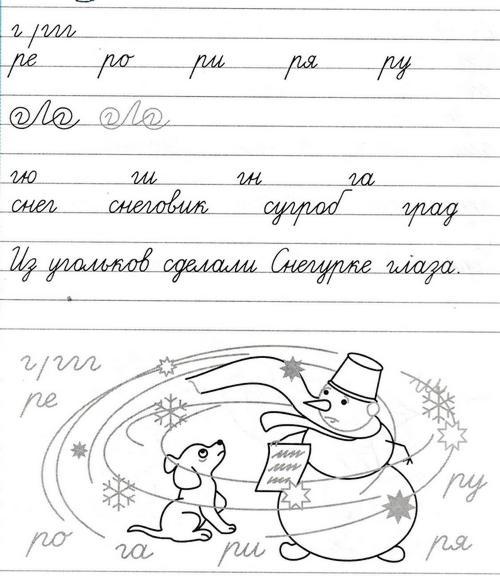 г г г г
ре ро ри ря ру
гю ги гн га
снег снеговик сугроб град
Из угольков сделали Снегурке глаза.
г г г г
ре
ру
ро га ри ря